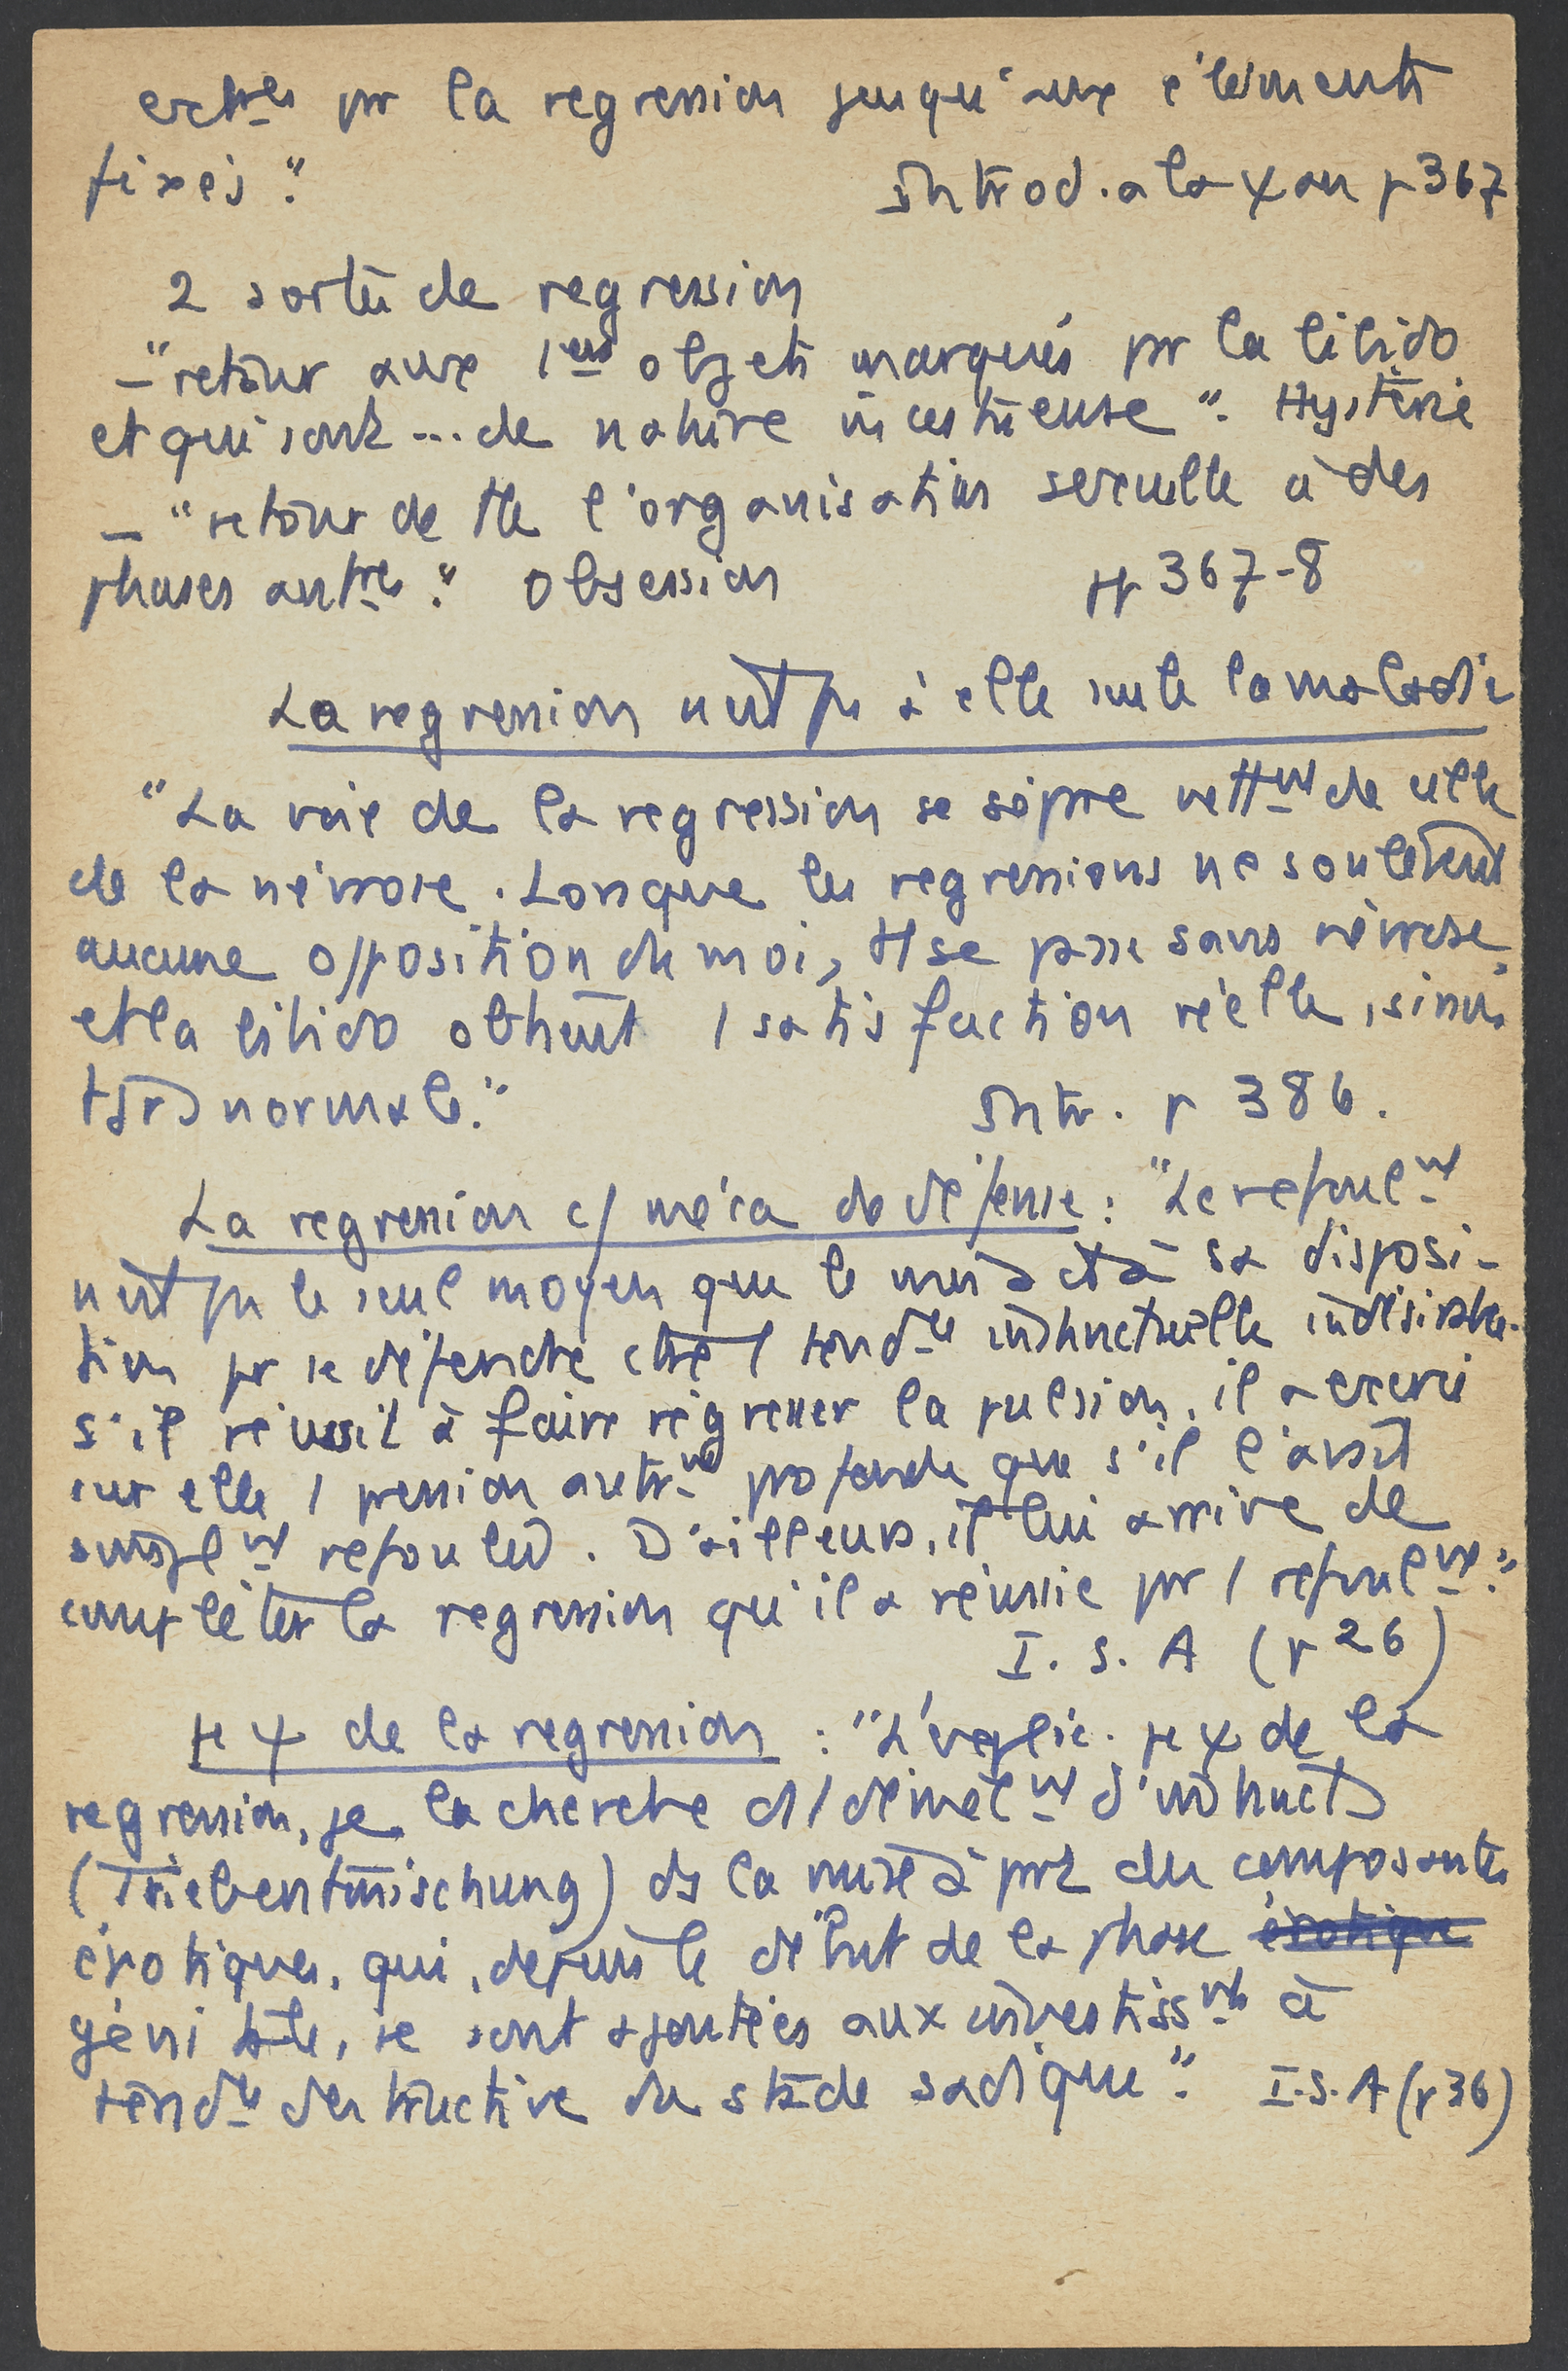 extres pr la regression jusqu'aux éléments
fixés."
Introd. a la ψan p 367
2 sortes de regression
– "retour aux 1ers objets marqués pr la libido
et qui sont ... de nature incestueuse". Hystérie
– "retour de tte l'organisation sexuelle à des
phases antres." Obsession
pp 367-8
La regression n'est pas à elle seule la maladie
"La voie de la regression se sépare nettmt de celle
de la névrose. Lorsque les regressions ne soulèvent
aucune opposition du moi, tt se passe sans névrose,
et la libido obtient 1 satisfaction réelle, sinon
tjrs normale."
Intr. p 386.
La regression c/ méca de défense : "Le refoulmt
n'est pas le seul moyen que le moi ait à sa disposi-
tion pr se défendre ctre 1 tendce instinctuelle indésirable.
S'il réussit à faire régresser la pulsion, il a exercé
sur elle 1 pression autrmt profonde que s'il l'avait
simplmt refoulée. D'ailleurs, il lui arrive de
compléter la regression qu'il a réussie pr 1 refoulmt."
I. S. A (p 26)
μψ de la regression : "L'explic. μψ de la
regression, je la cherche ds 1 démêlmt d'instincts
(Triebentmischung) ds la mise à part des composantes
érotiques, qui, depuis le début de la phase érotique
génitale, se sont ajoutées aux investissmts à
tendce destructive du stade sadique".
I.S.A (p 36)